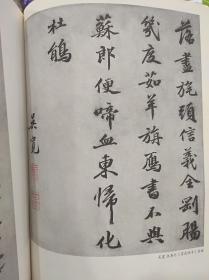 落盡旄頭信義全剛腸
幾度茹羊旃鴈書不與
蘇郎便啼血東歸化
杜鵑
吳寬